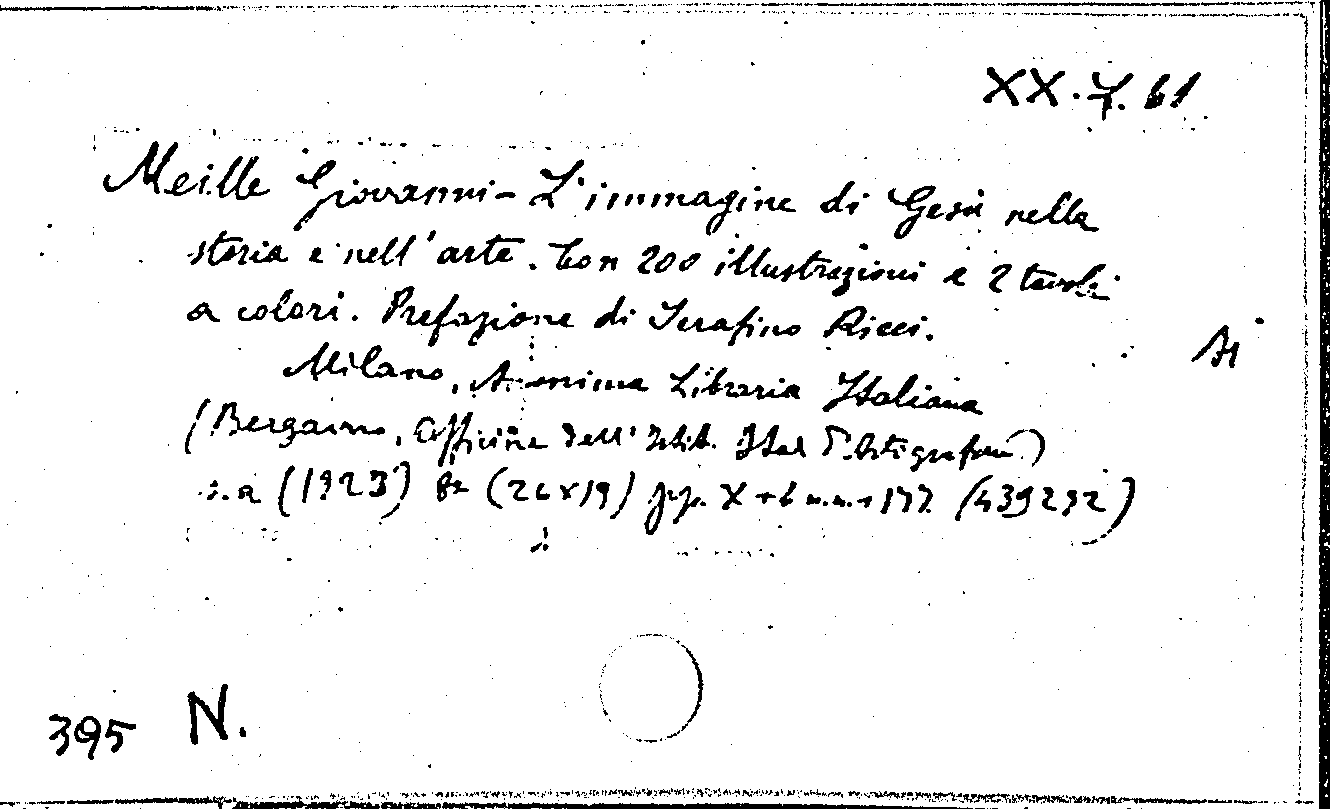 XX. 7. 61
Meille Giovanni - L'immagine di Gesù nella
storia e nell'arte. Con 200 illustrazioni e 2 tavole
a colori. Prefazione di Serafino Ricci.
Milano, Anonima Libraria Italiana
(Bergamo, Officine dell'Istit. Ital. d'Arti grafiche)
s.a (1923) 8º (26x19) pp. X + 6 n.n. + 177. (439292)
395 N.